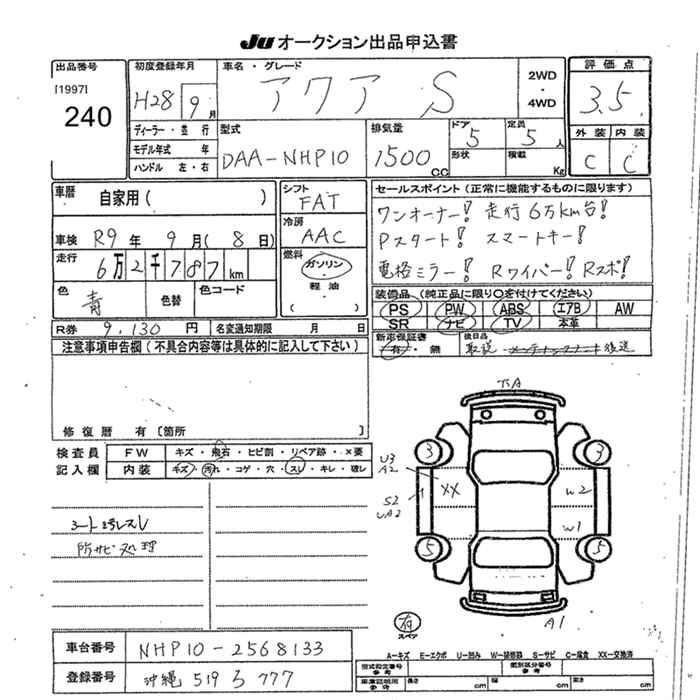 JU オークション出品申込書
出品番号
[1997]
240
初度登録年月
H28 9月
車名・グレード
アクア S
2WD
・
4WD
評価点
3.5
外装 内装
C C
ディーラー・並行
モデル年式 年
ハンドル 左・右
型式
DAA-NHP10
排気量
1500 CC
ドア
5
形状
定員
5人
積載
Kg
車歴
自家用( )
車検 R9年 9月( 8日)
走行 6万2千787km
色 青
色替
色コード
シフト
FAT
冷房
AAC
燃料
ガソリン
・
軽油
( )
セールスポイント(正常に機能するものに限ります)
ワンオーナー! 走行6万km台!
Pスタート! スマートキー!
電格ミラー! Rワイパー! Rスポ!
装備品(純正品に限り○を付けてください)
PS PW ABS エアB AW
SR ナビ TV 本革
R券 9,130円 名変通知期限 月 日
新車保証書
有・無
後日品
取説・メンテナンスノート後送
注意事項申告欄(不具合内容等は具体的に記入して下さい)
修復歴 有〔箇所
検査員
記入欄
FW キズ・飛石・ヒビ割・リペア跡・×要
内装 キズ・汚れ・コゲ・穴・スレ・キレ・破レ
シート汚レスレ
防サビ処理
U3
A2
S2
UA2
XX
W2
W1
3
3
5
5
A1
スペア
A-キズ E-エクボ U-凹み W-補修跡 S-サビ C-腐食 XX-交換済
車台番号 NHP10-2568133
登録番号 沖縄 519 ろ 777
型式指定番号
参考
類別区分番号
参考
車庫証明用
参考
長さ cm 幅 cm 高さ cm